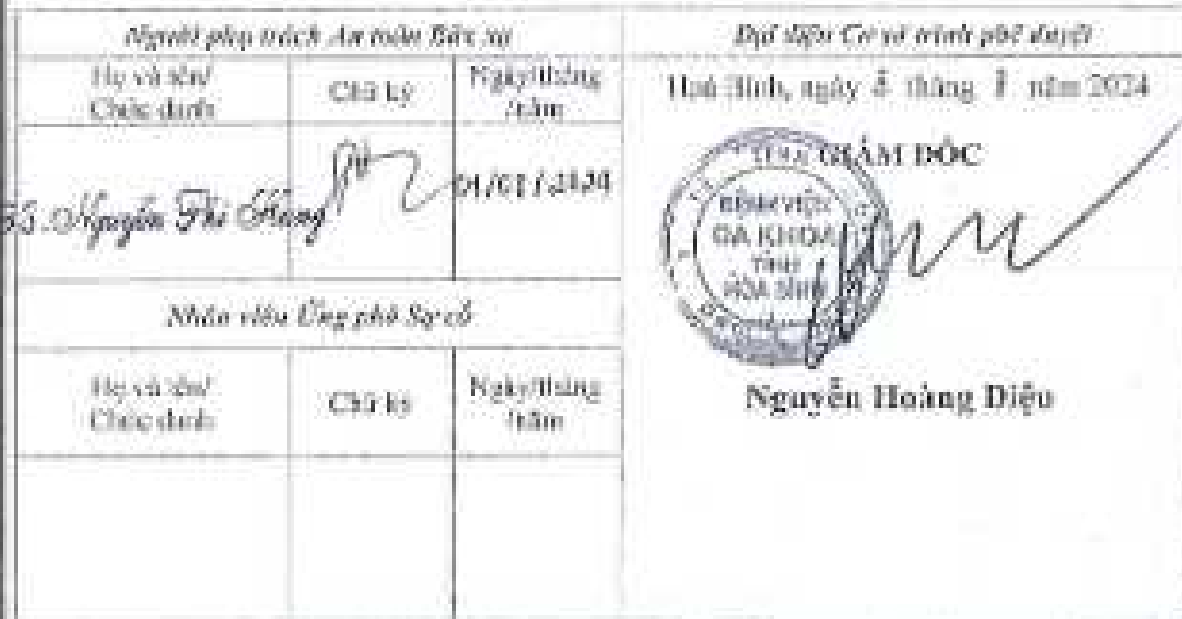 Người phụ trách An toàn Bức xạ
Họ và tên/
Chức danh
Chữ ký
Ngày/tháng
/năm
Nguyễn Thị
Nhân viên Ứng phó Sự cố
Họ và tên/
Chức danh
Chữ ký
Ngày/tháng
/năm
Đại diện Cơ sở trình phê duyệt
Hoà Bình, ngày tháng năm 2024
GIÁM ĐỐC
BỆNH VIỆN
ĐA KHOA
TỈNH
HÒA BÌNH
Nguyễn Hoàng Diệu